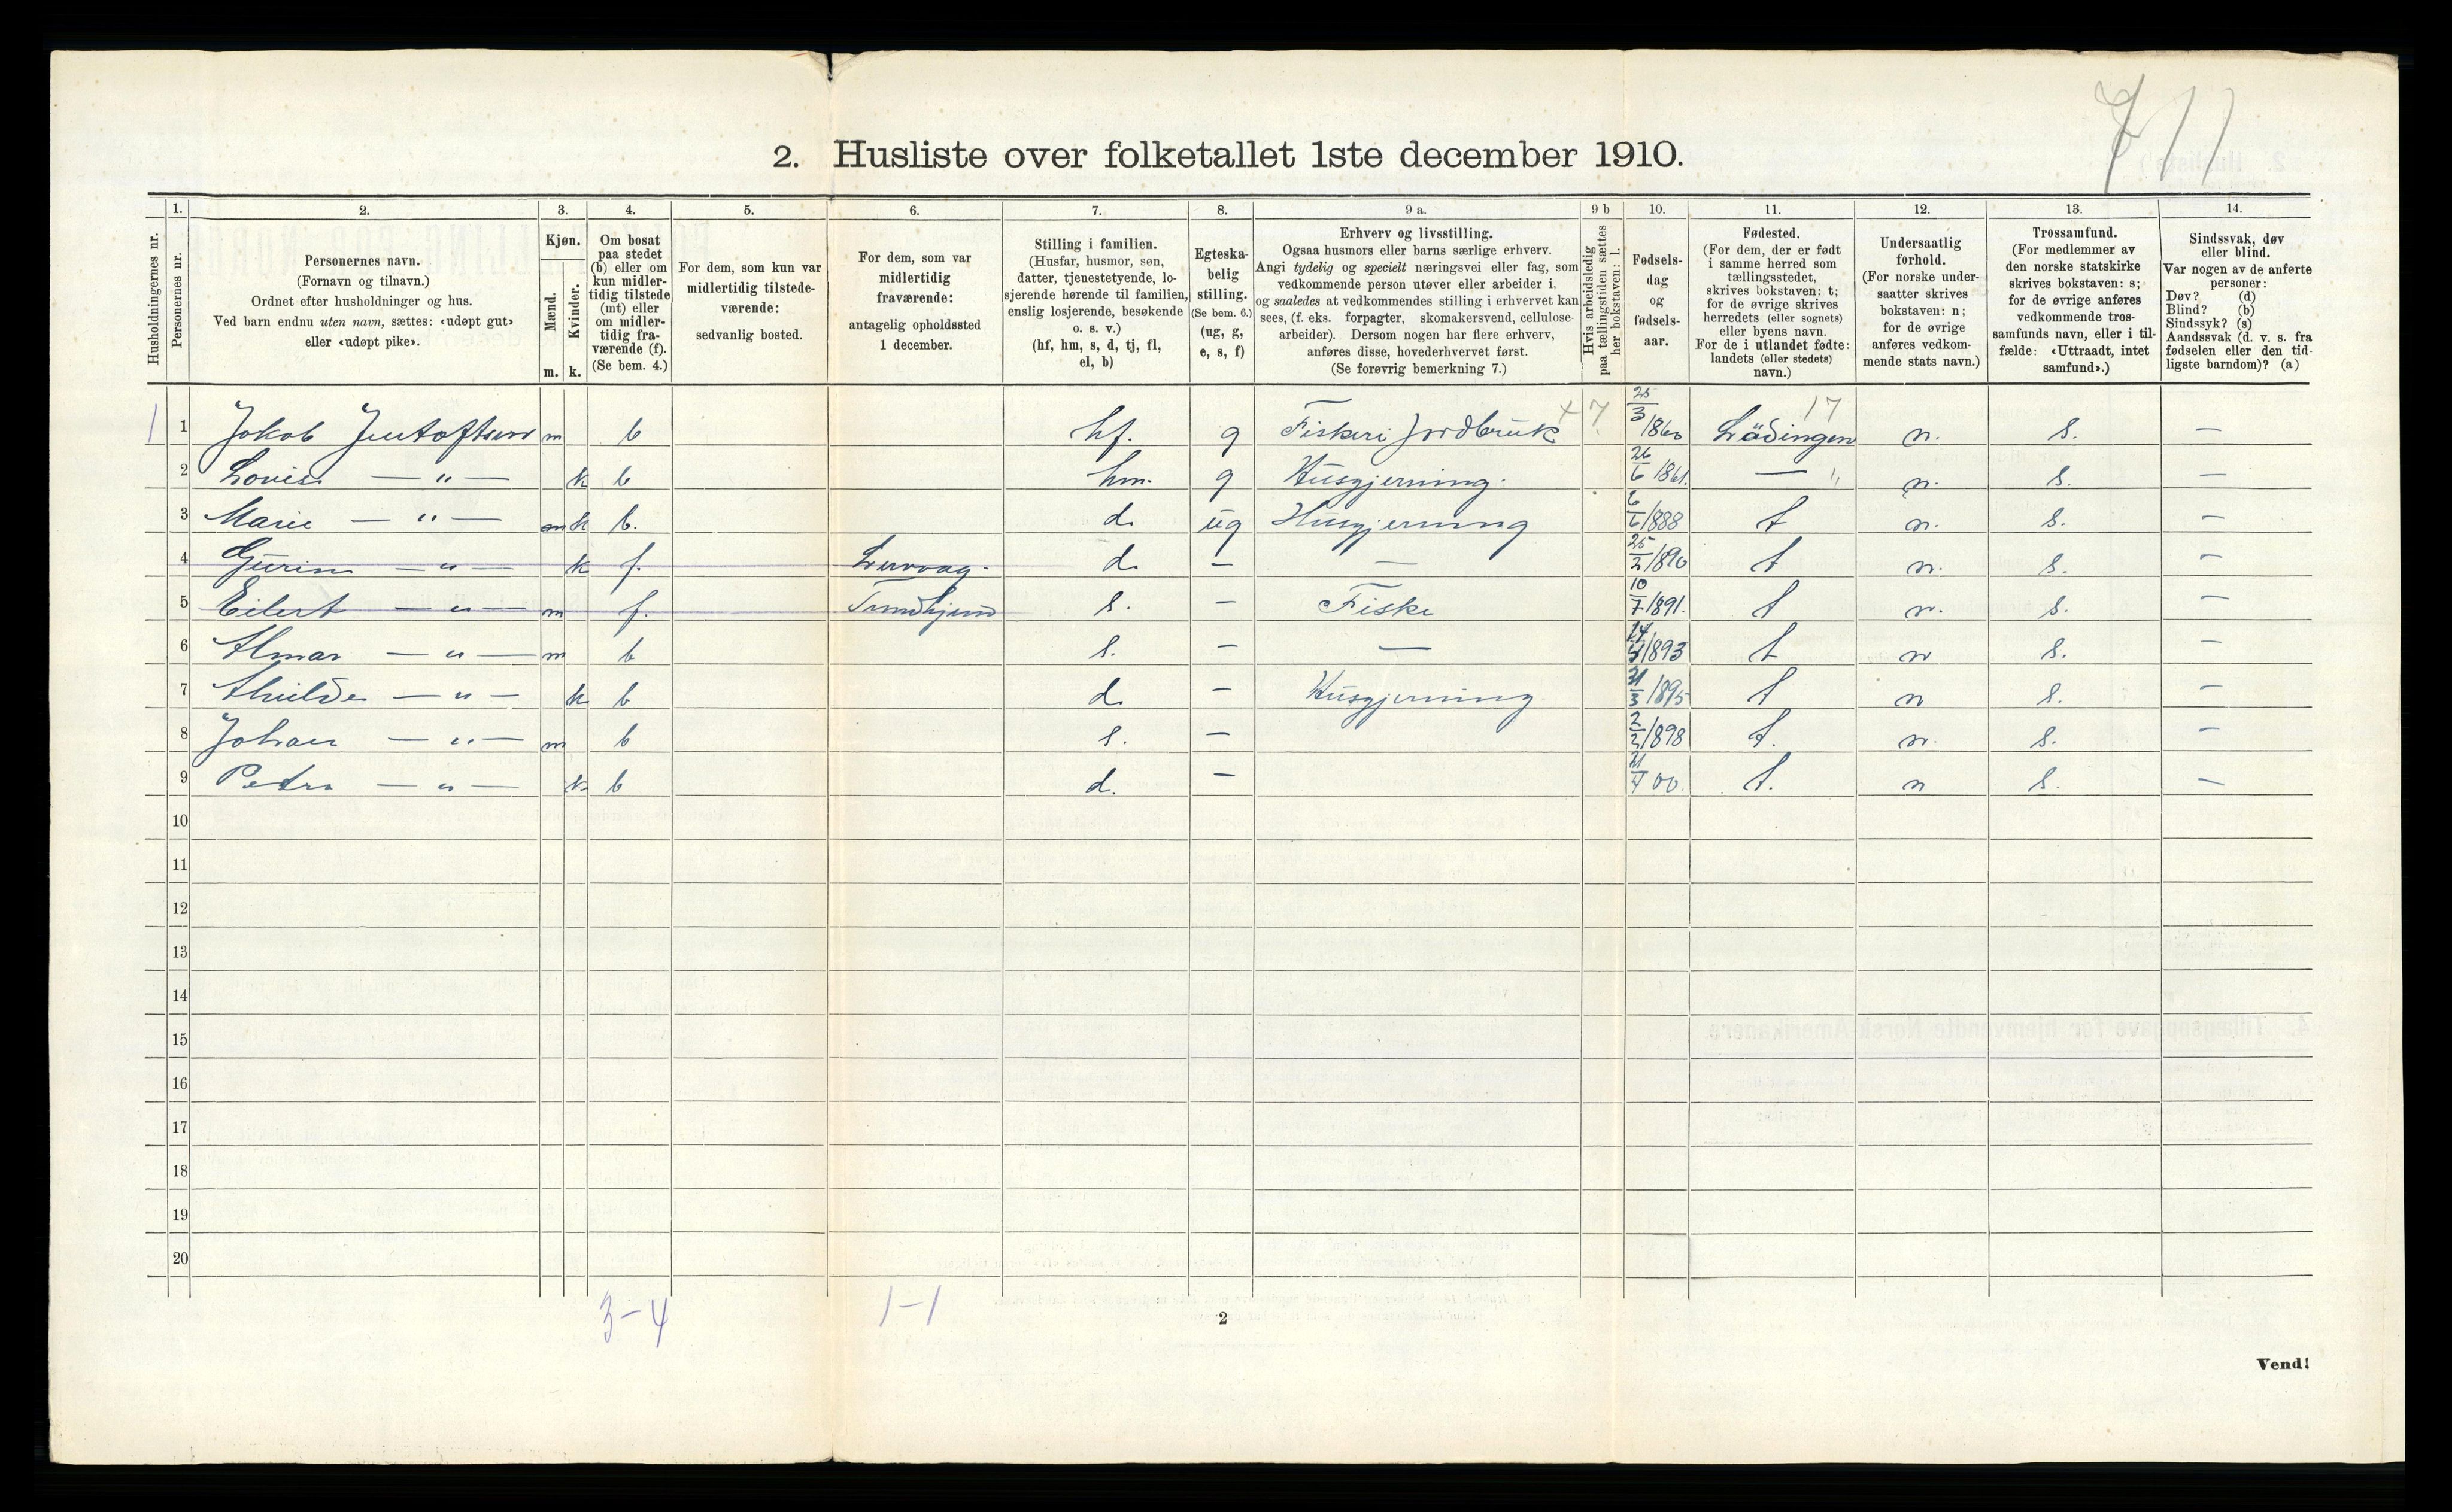 711
2. Husliste over folketallet 1ste december 1910.
Husholdningernes nr.
1.
Personernes nr.
2.
Personernes navn.
(Fornavn og tilnavn.)
Ordnet efter husholdninger og hus.
Ved barn endnu uten navn, sættes: «udøpt gut»
eller «udøpt pike».
3.
Kjøn.
Mænd.
Kvinder.
m. k.
4.
Om bosat
paa stedet
(b) eller om
kun midler-
tidig tilstede
(mt) eller
om midler-
tidig fra-
værende (f).
(Se bem. 4.)
5.
For dem, som kun var
midlertidig tilstede-
værende:
sedvanlig bosted.
6.
For dem, som var
midlertidig
fraværende:
antagelig opholdssted
1 december.
7.
Stilling i familien.
(Husfar, husmor, søn,
datter, tjenestetyende, lo-
sjerende hørende til familien,
enslig losjerende, besøkende
o. s. v.)
(hf, hm, s, d, tj, fl,
el, b)
8.
Egteska-
belig
stilling.
(Se bem. 6.)
(ug, g,
e, s, f)
9 a.
Erhverv og livsstilling.
Ogsaa husmors eller barns særlige erhverv.
Angi tydelig og specielt næringsvei eller fag, som
vedkommende person utøver eller arbeider i,
og saaledes at vedkommendes stilling i erhvervet kan
sees, (f. eks. forpagter, skomakersvend, cellulose-
arbeider). Dersom nogen har flere erhverv,
anføres disse, hovederhvervet først.
(Se forøvrig bemerkning 7.)
9 b
Hvis arbeidsledig
paa tællingstiden sættes
her bokstaven: l.
10.
Fødsels-
dag
og
fødsels-
aar.
11.
Fødested.
(For dem, der er født
i samme herred som
tællingsstedet,
skrives bokstaven: t;
for de øvrige skrives
herredets (eller sognets)
eller byens navn.
For de i utlandet fødte:
landets (eller stedets)
navn.)
12.
Undersaatlig
forhold.
(For norske under-
saatter skrives
bokstaven: n;
for de øvrige
anføres vedkom-
mende stats navn.)
13.
Trossamfund.
(For medlemmer av
den norske statskirke
skrives bokstaven: s;
for de øvrige anføres
vedkommende tros-
samfunds navn, eller i til-
fælde: «Uttraadt, intet
samfund».)
14.
Sindssvak, døv
eller blind.
Var nogen av de anførte
personer:
Døv? (d)
Blind? (b)
Sindssyk? (s)
Aandssvak (d. v. s. fra
fødselen eller den tid-
ligste barndom)? (a)
1 1 Jokob Jentoftsen m b hf. g Fiskeri Jordbruk 25/3 1860 Lødingen 17 n. s. —
2 Lovise — " — k b hm. g Husgjerning. 26/6 1861. — " n. s. —
3 Marie — " — k b. d. ug Husgjerning 6/6 1888 t n. s. —
4 — " — k f. d. — — 25/2 1890 t n. s. —
5 Eilert — " — m f. s. — Fiske 10/7 1891. t n. s. —
6 Almar — " — m b s. — — 1893 t n s. —
7 — " — k b d. — Husgjerning 1895 t n s. —
8 Johan — " — m b s. — 2/2 1898 t. n. s. —
9 Petra — " — k b d. — 00. t. n s. —
10
11
12
13
14
15
16
17
18
19
20
3-4 1-1
2
Vend!